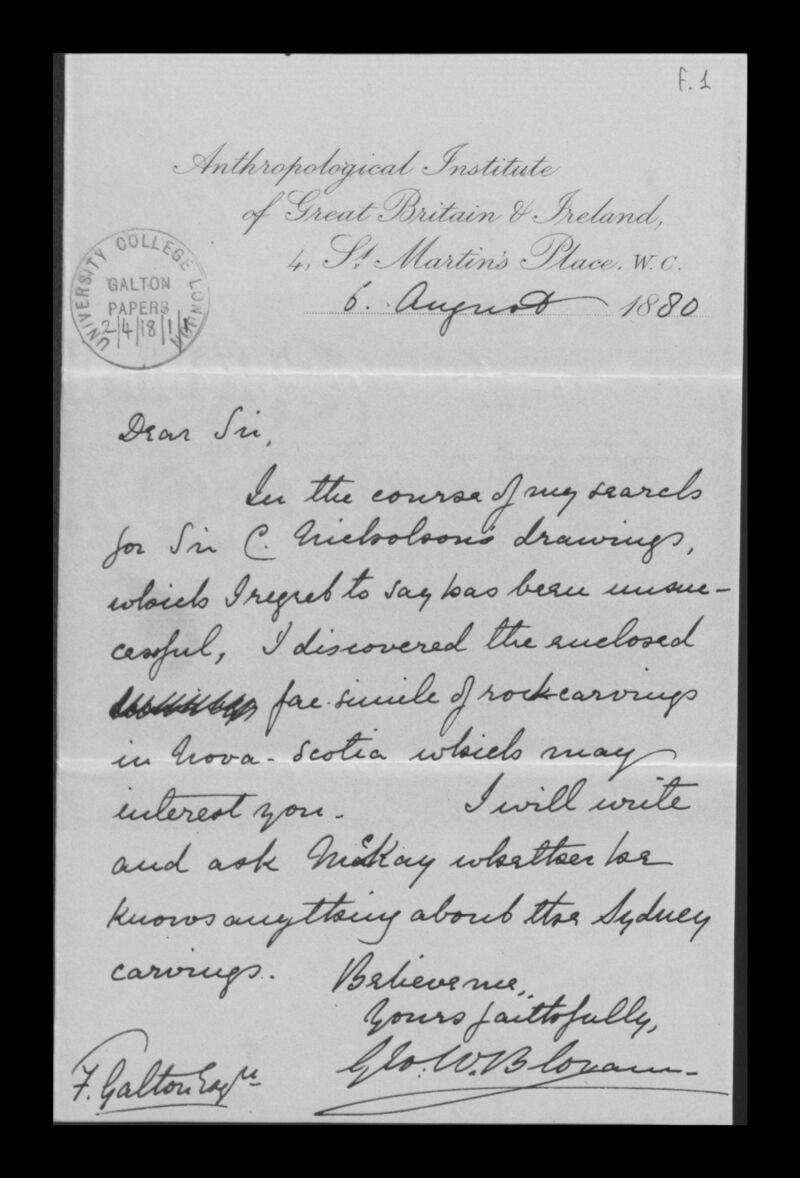 F. 1
Anthropological Institute
of Great Britain & Ireland,
4, St Martin's Place. W.C.
6. August 1880
UNIVERSITY COLLEGE LONDON
GALTON
PAPERS
2/4/18/1/1
Dear Sir,
In the course of my search
for Sir C. Nicholson's drawings,
which I regret to say has been unsuc-
cessful, I discovered the enclosed
fac-simile of rock carvings
in Nova-Scotia which may
interest you. I will write
and ask McKay whether he
knows anything about the Sydney
carvings. Believe me,
Yours faithfully,
Geo. W. Bloxam
F. Galton Esqre